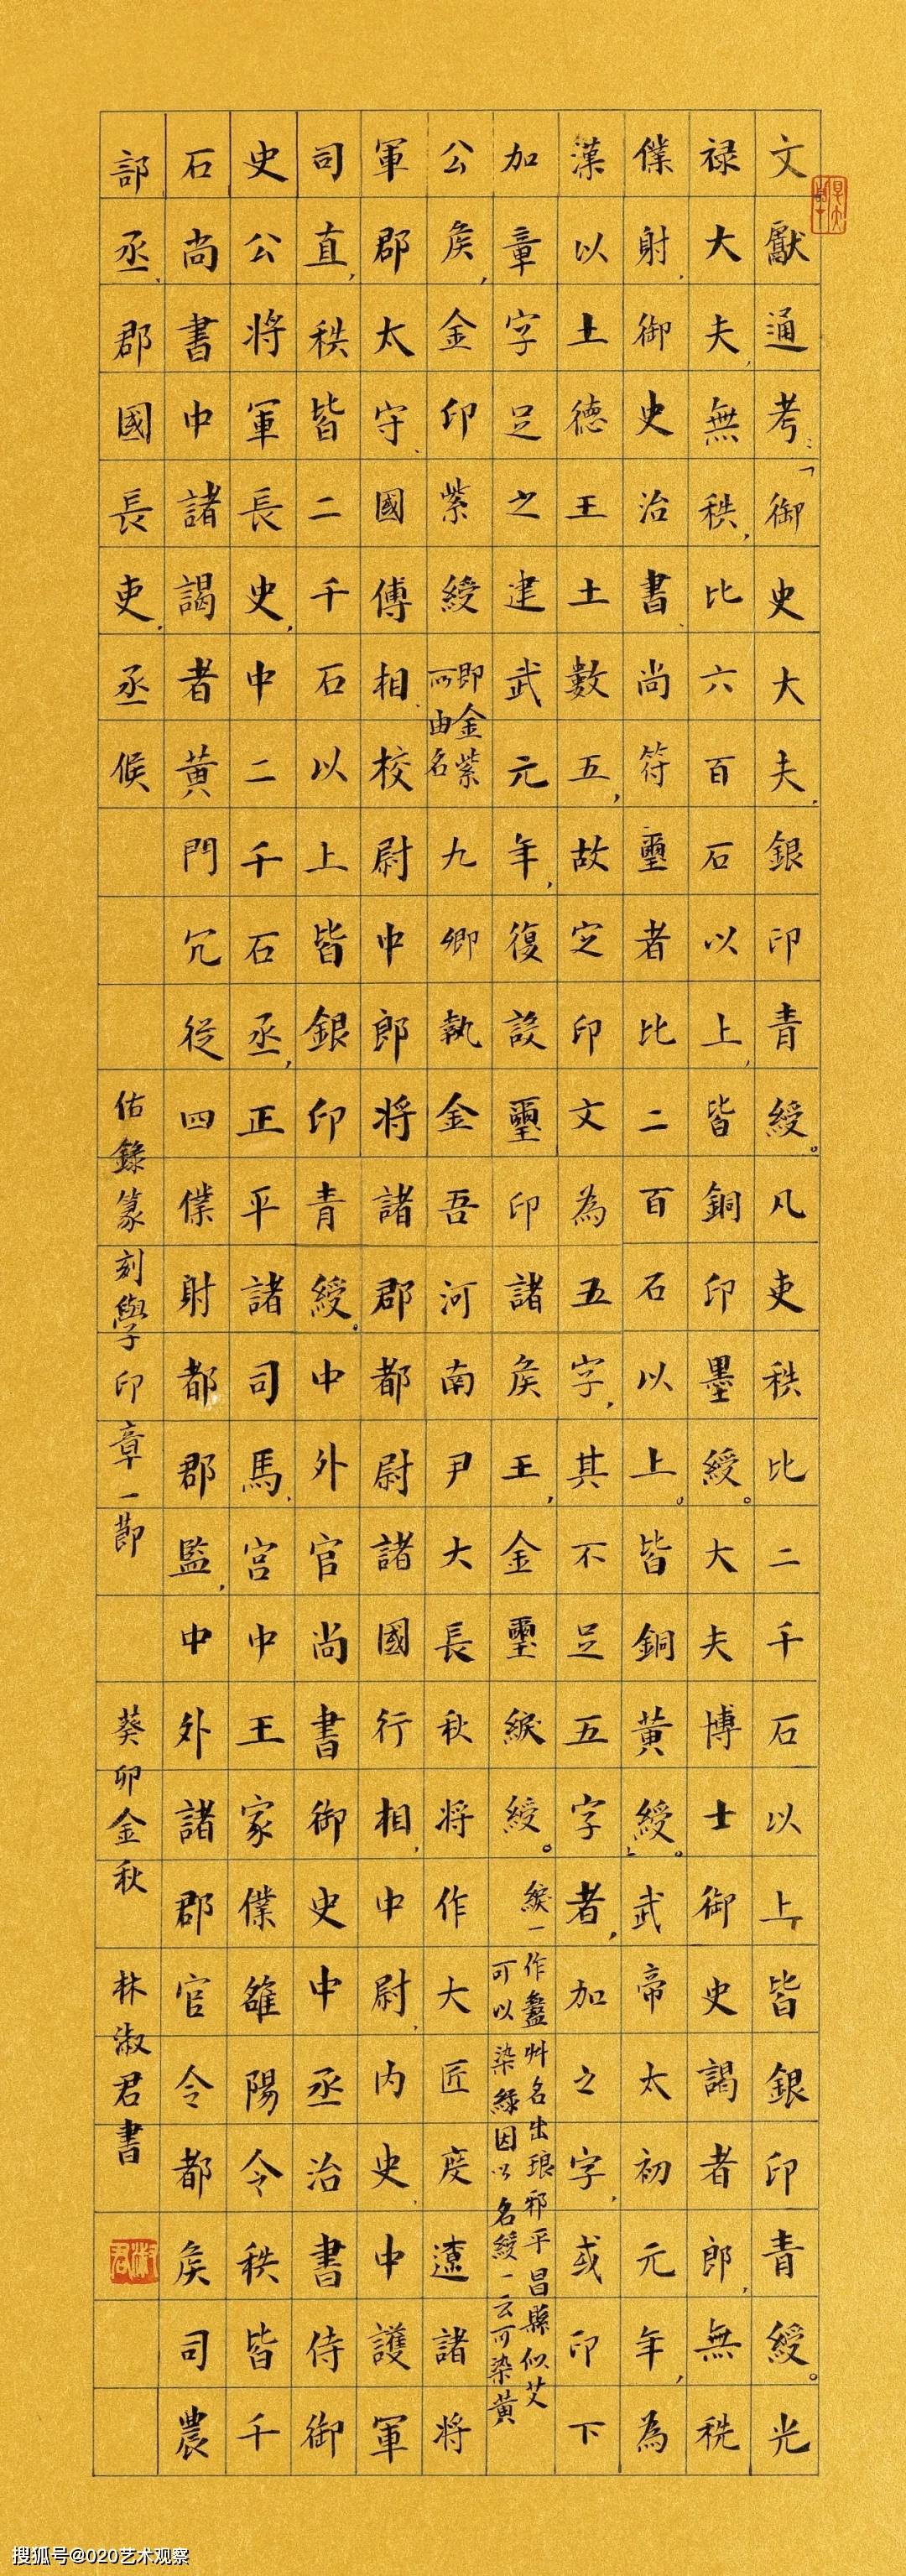 文獻通考：「御史大夫，銀印青綬。凡吏秩比二千石以上皆銀印青綬。光
禄大夫，無秩，比六百石以上，皆銅印墨綬。大夫博士御史謁者郎，無秩
僕射，御史治書、尚符璽者比二百石以上。皆銅黃綬。武帝太初元年，為
漢以土德王土數五，故定印文為五字，其不足五字者，加之字，或印下
加章字足之建武元年，復設璽印諸侯王，金璽綟綬。
綟一作盭艸名出琅邪平昌縣似艾
可以染綠因以名綬一云可染黃
公侯，金印紫綬
即金紫
所由名
九卿執金吾河南尹大長秋将作大匠度遼諸将
軍郡太守、國傅相、校尉中郎将諸郡都尉諸國行相，中尉、内史、中護軍
司直，秩皆二千石以上皆銀印青綬。中外官尚書御史中丞治書侍御
史公将軍長史，中二千石丞，正平諸司馬、宮中王家僕雒陽令秩皆千
石尚書中諸謁者黃門冗從四僕射都郡監，中外諸郡官令都侯司農
部丞、郡國長吏、丞候
佑錄篆刻學印章一節
癸卯金秋
林淑君書
淑君
搜狐号@020艺术观察